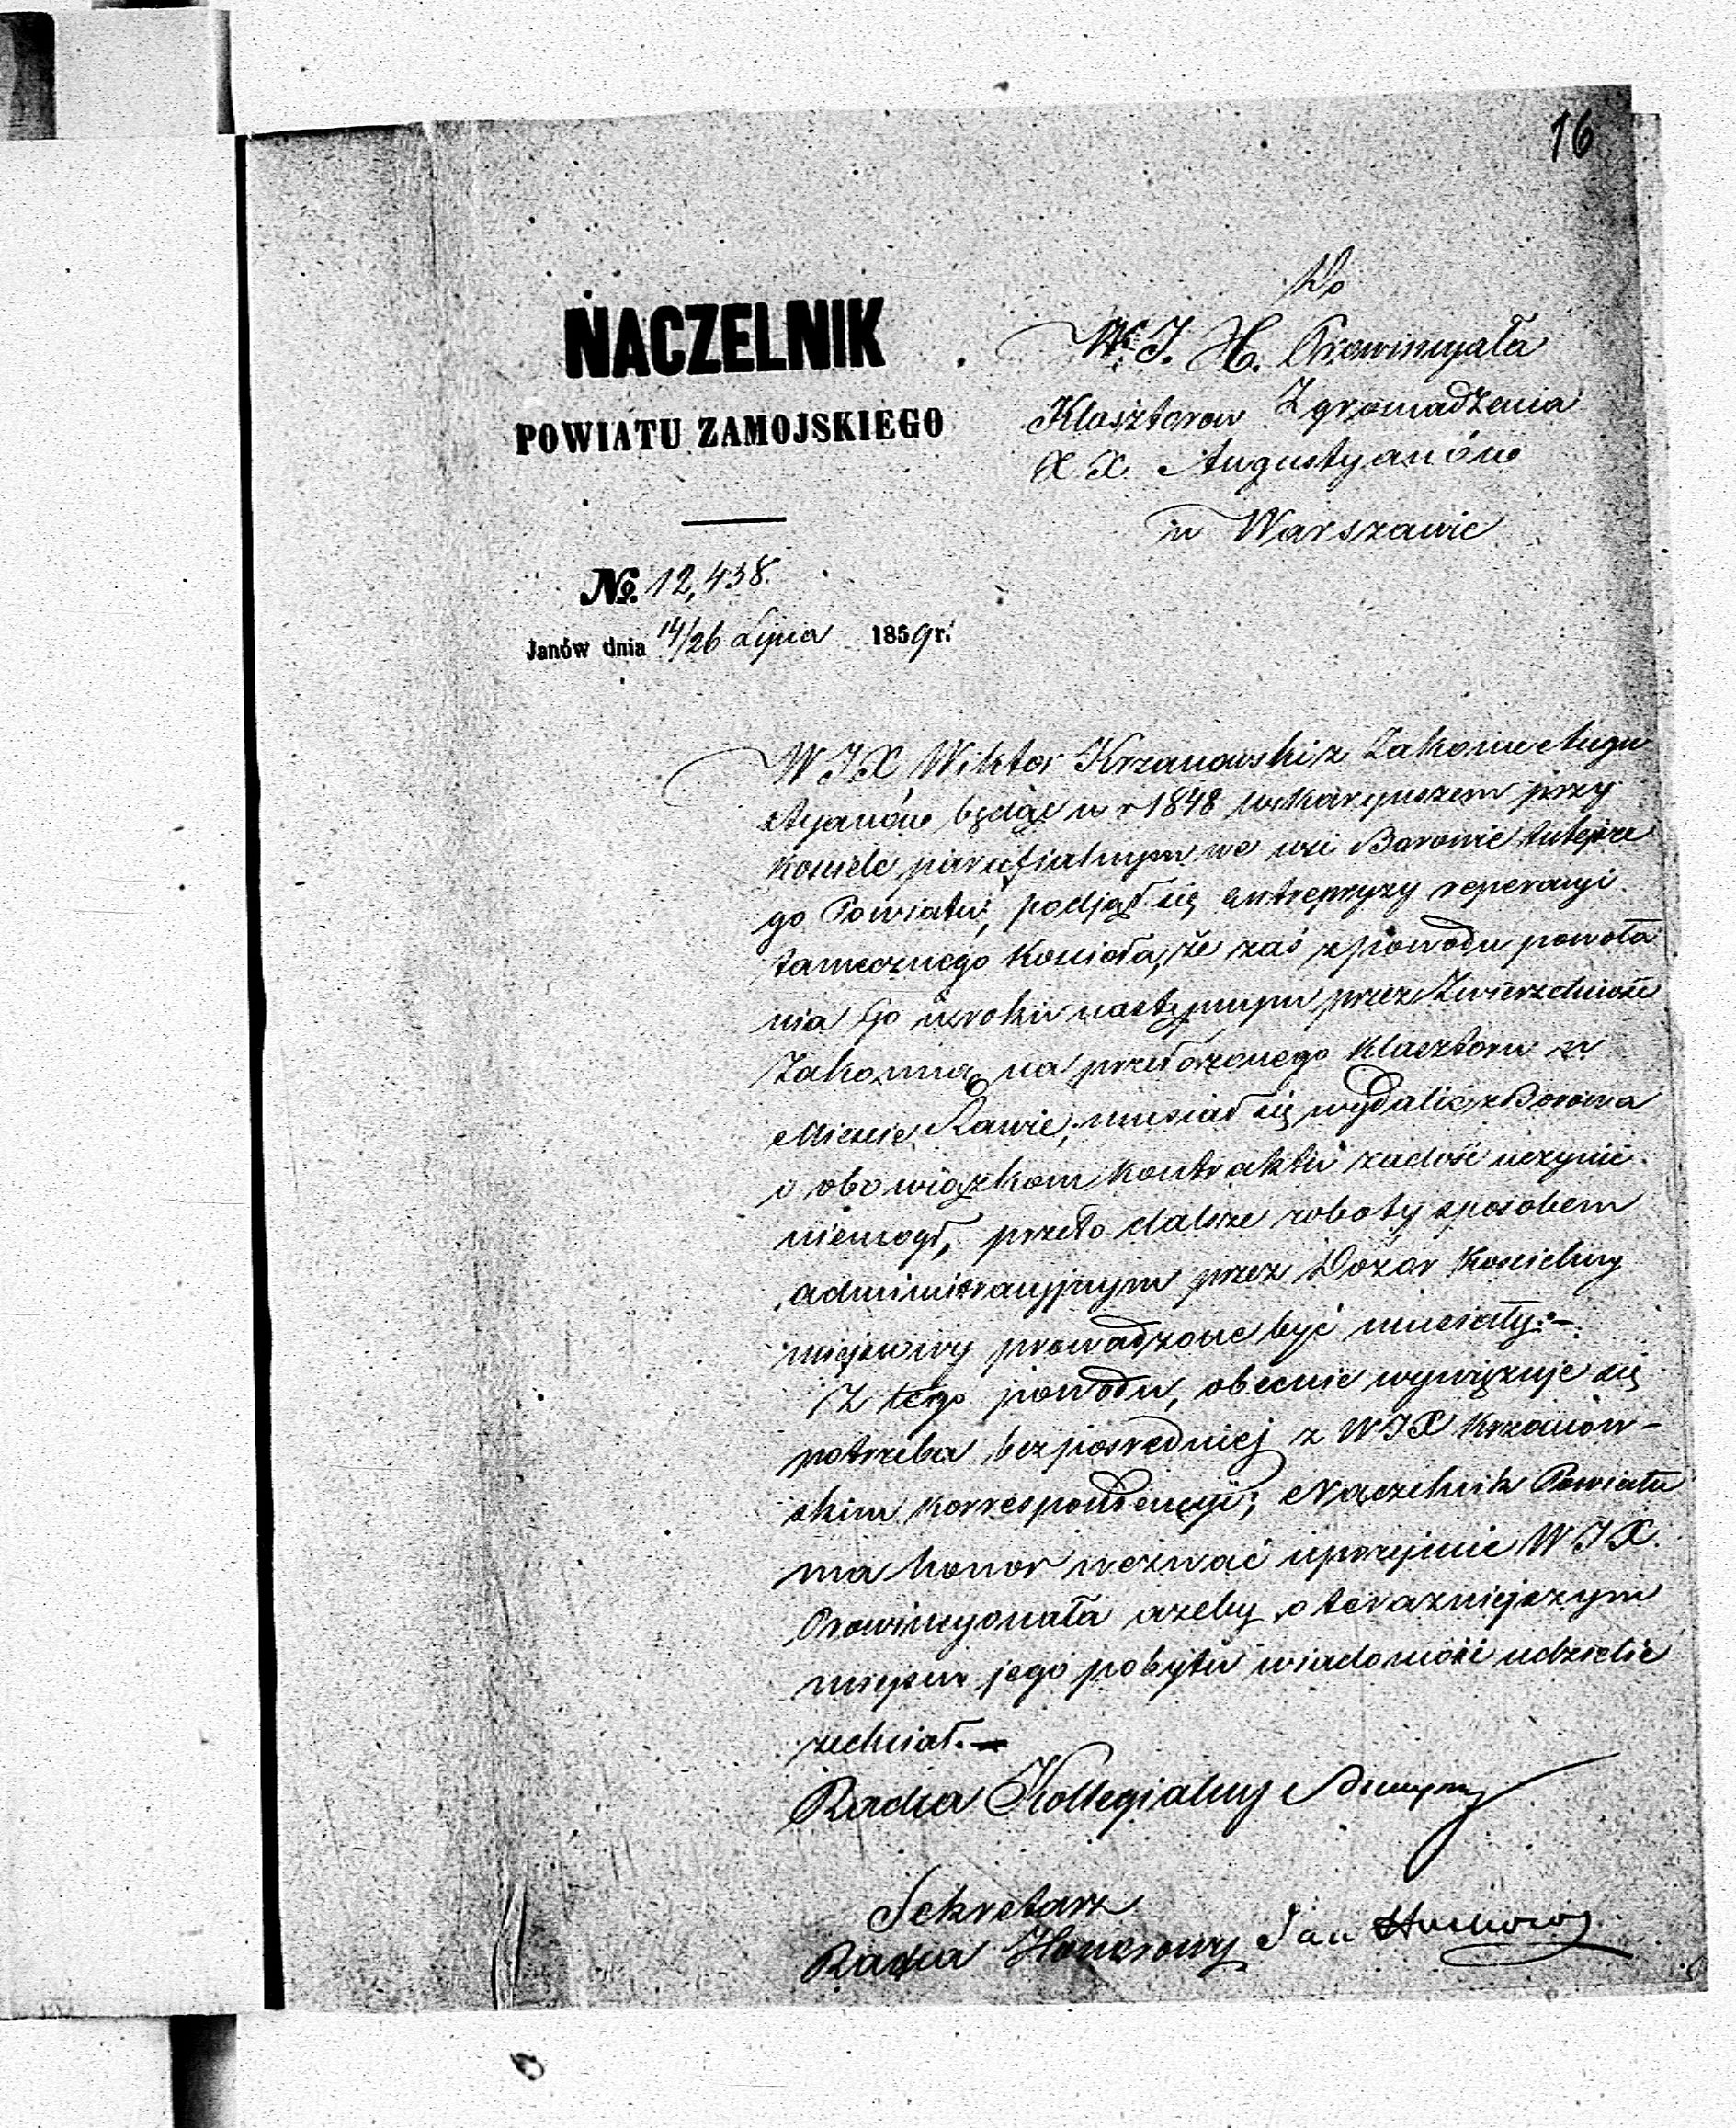 16
NACZELNIK
POWIATU ZAMOJSKIEGO
No. 12,438.
Janów dnia 14/26 Lipca 1859 r.
Do
W. J. X. Prowincyała
Klasztorow Zgromadzenia
X X. Augustyanów
w Warszawie
W J X Wiktor Krzanowski z Zakonu Augu
styanów będąc w r 1848 wikaryuszem przy
Kościele parafialnym we wsi Borowie tutejsze
go Powiatu, podjął się entrepryzy reperacyi
tamecznego Kościoła, że zaś z powodu powoła
nia Go w roku następnym przez Zwierzchność
Zakonną na przełożonego Klasztoru w
Mieście Rawie, musiał się wydalić z Borowa
i obowiązkom Kontraktu zadość uczynić
niemogł, przeto dalsze roboty sposobem
administracyjnym przez Dozor Kościelny
miejscowy prowadzone być musiały.–
Z tego powodu, obecnie wywięzuje się
potrzeba bezpośredniej z W J X Krzanow-
skim Korrespondencyi; Naczelnik Powiatu
ma honor wezwać uprzejmie W J X.
Prowincyonała ażeby o terazniejszym
miejscu jego pobytu wiadomość udzielić
zechciał.—
Radca Kollegialny
Sekretarz
Radca Honorowy Jan